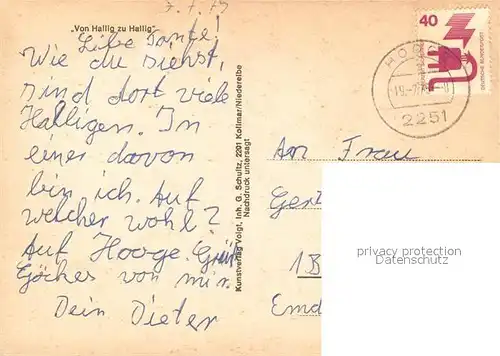 7.7.75
„Von Hallig zu Hallig"
Liebe Tante!
Wie du siehst,
sind dort viele
Halligen. In
einer davon
bin ich. Auf
welcher wohl?
Auf Hooge. Grüß
von mir.
Dein Dieter
Kunstverlag Voigt, Inh. G. Schultz, 2201 Kollmar/Niederelbe
Nachdruck untersagt
40
DEUTSCHE BUNDESPOST
HOOGE
2251
An Frau
Gert
1 B
Emd
privacy protection
Datenschutz